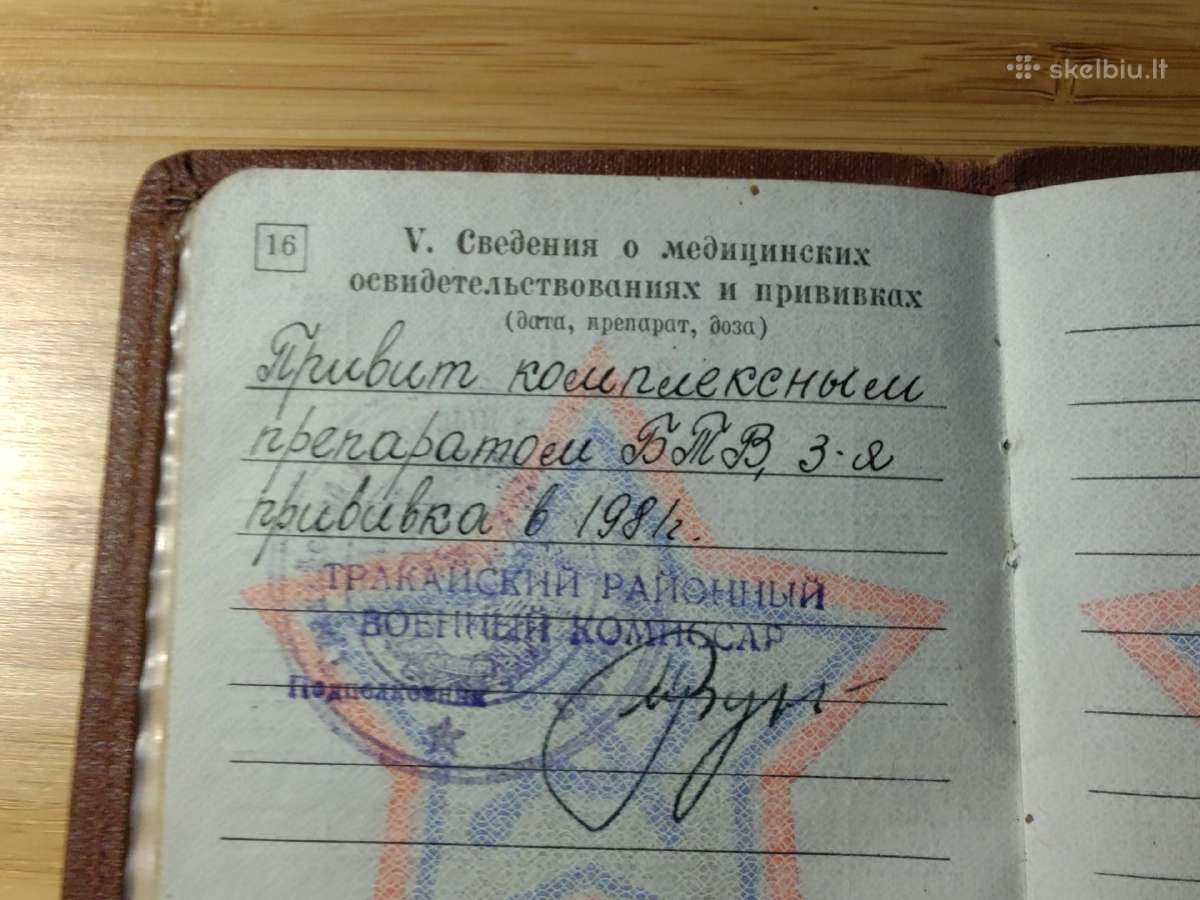 skelbiu.lt
16
V. Сведения о медицинских
освидетельствованиях и прививках
(дата, препарат, доза)
Привит комплексным
препаратом БТВ, 3-я
прививка в 1981г.
ТРАКАЙСКИЙ РАЙОННЫЙ
ВОЕННЫЙ КОМИССАР
Подполковник